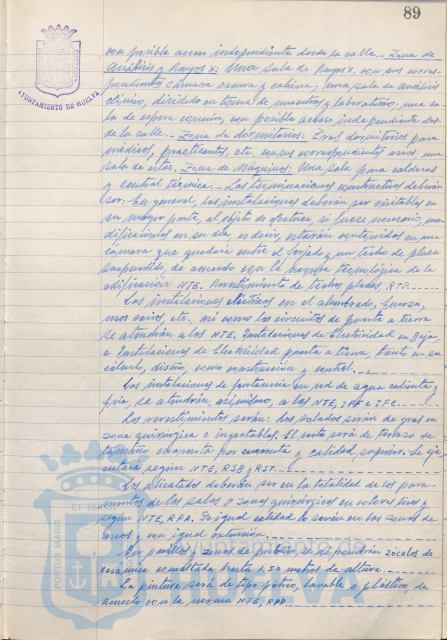 89
AYUNTAMIENTO DE HUELVA
con posible acceso independiente desde la calle.- Zona de
Análisis y Rayos X: Una sala de Rayos X, con sus corres-
pondientes cámara oscura y cabina; una sala de análisis
clínico, dividido en toma de muestras y laboratorio; una sa-
la de espera común, con posible acceso independiente des-
de la calle.- Zona de dormitorios: Tres dormitorios para
médicos, practicantes, etc. con sus correspondientes aseos, una
sala de estar. Zona de Máquinas: Una sala para calderas
y central térmica.- Las terminaciones constructivas deberán
ser: En general, las instalaciones deberán ser visitables en
su mayor parte, al objeto de efectuar, si fuese necesario, mo-
dificaciones en su día, es decir, estarán contenidas en una
cámara que quedaría entre el forjado y un techo de placa
suspendido, de acuerdo con la norma tecnológica de la
edificación NTE. Revestimiento de techos placas, RTP.
Las instalaciones eléctricas en el alumbrado, fuerza,
usos varios, etc. así como los circuitos de puesta a tierra
se atendrán a las NTE. Instalaciones de Electricidad en Baja,
e Instalaciones de Electricidad puesta a tierra, tanto en su
cálculo, diseño, como construcción y control.
Las instalaciones de fontanería en red de agua caliente y
fría se atendrán asimismo, a las NTE, IFF e IFC.
Los revestimientos serán: Los solados serán de gres en
zona quirúrgica e inyectables. El resto será de terrazo de
tamaño cuarenta por cuarenta y calidad superior. Se eje-
cutará según NTE, RSB y RST.
Los alicatados deberán ser en la totalidad de los para-
mentos de las salas o zonas quirúrgicas en colores lisos y
según NTE, RPA. De igual calidad lo serán en las zonas de
aseos, y con igual extensión.
En pasillos y zonas de público se dispondrán zócalos de
cerámica esmaltada hasta 1.50 metros de altura.
La pintura será de tipo pétreo, lavable o plástico, de
acuerdo con la norma NTE, RPP.
PORTUS MARIS
ET TERRAE
Ayuntamiento de
HUELVA